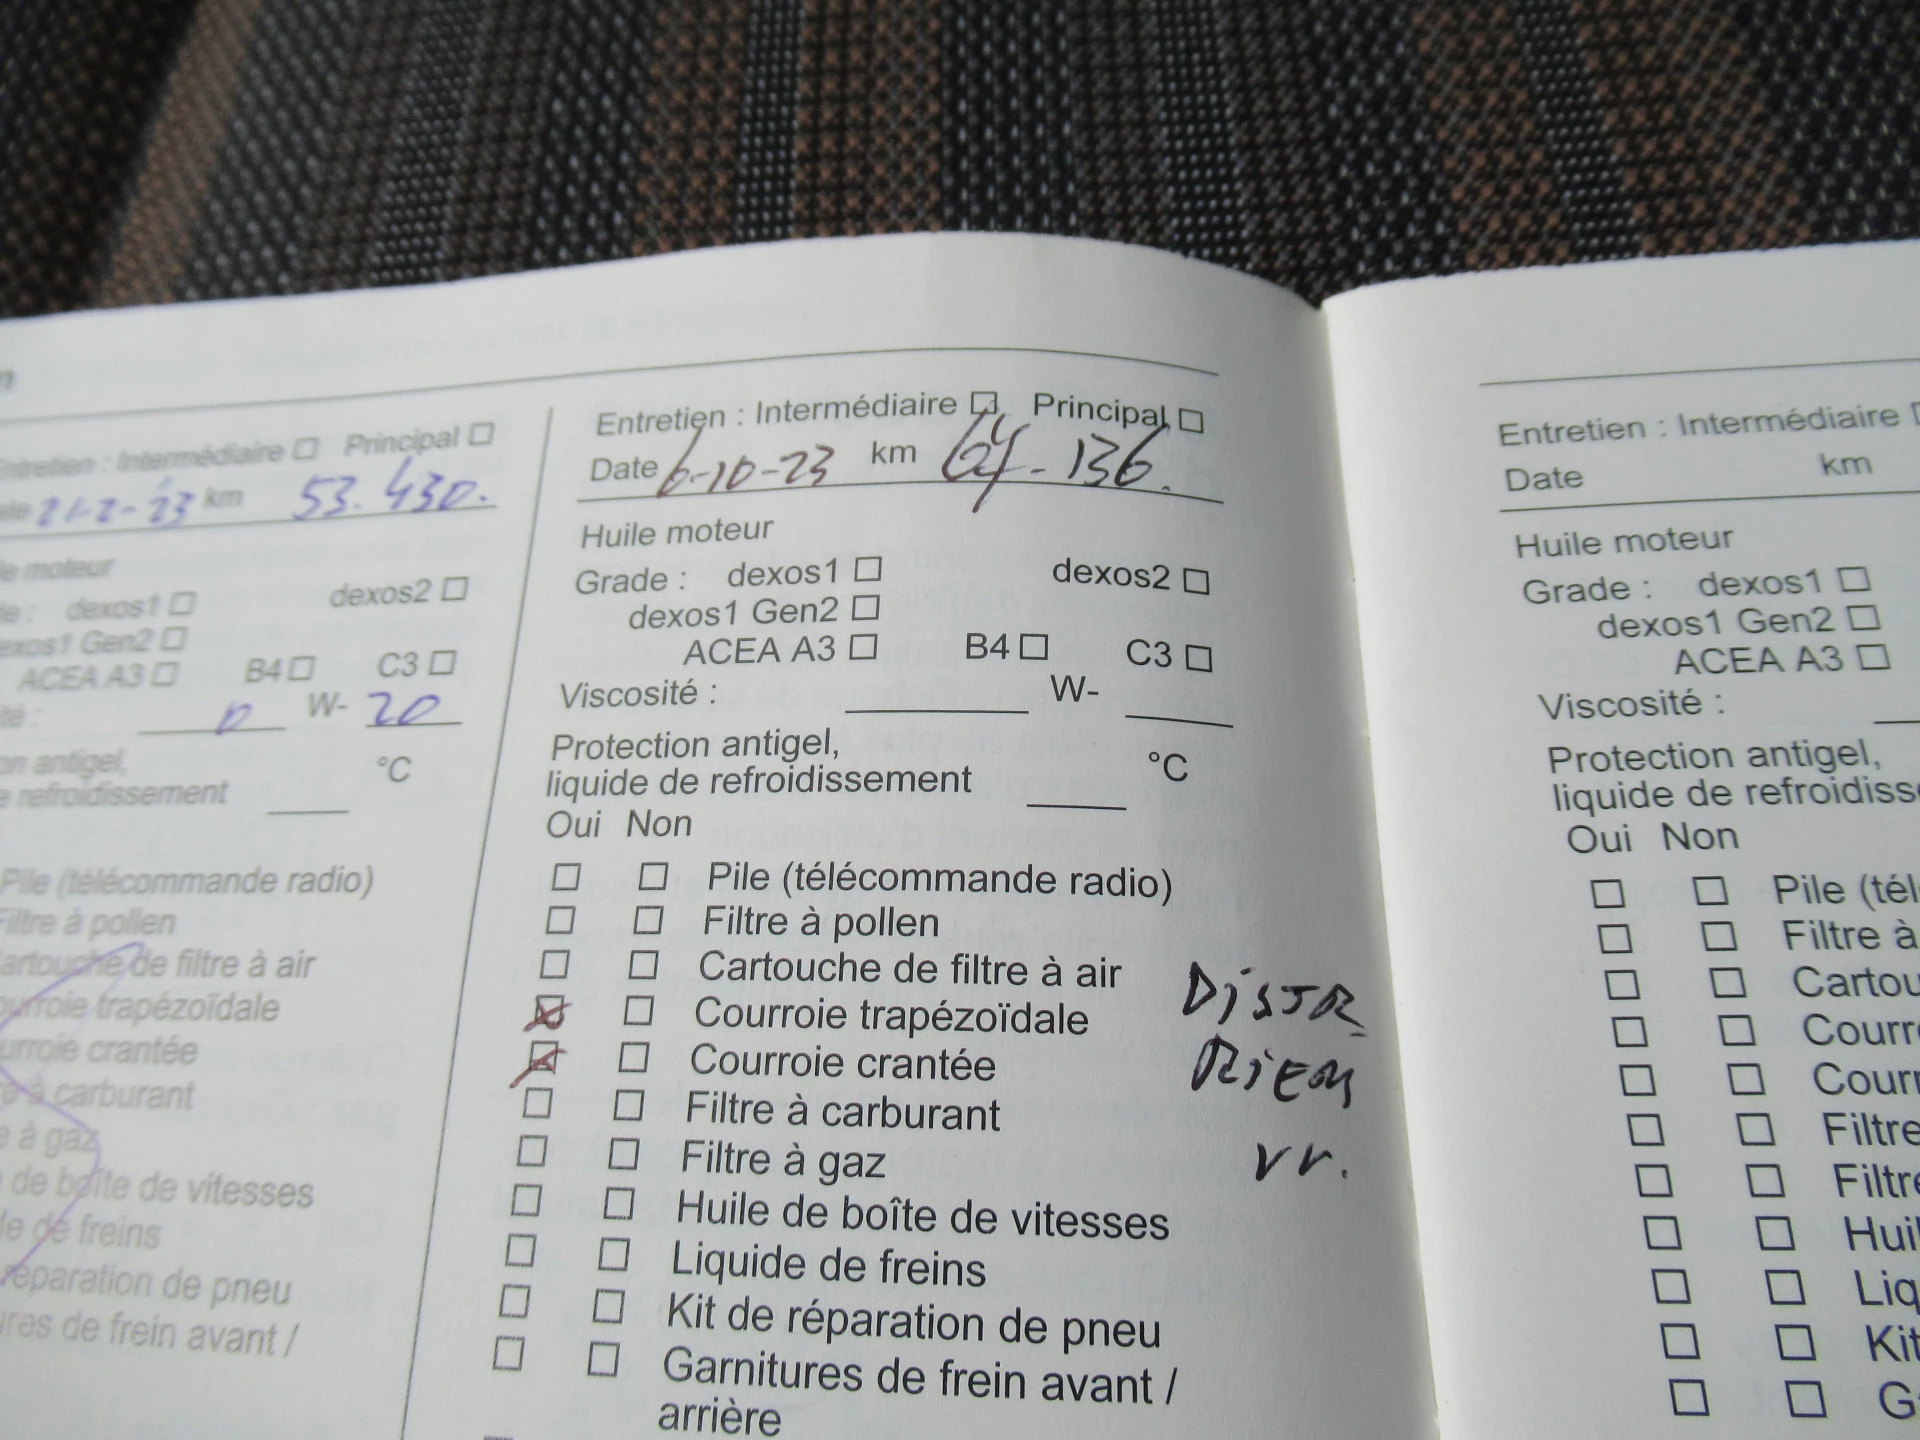 Entretien : Intermédiaire Principal
21-2-23 km 53.430.
moteur
dexos1 dexos2
dexos1 Gen2
ACEA A3 B4 C3
W- 20
antigel,
refroidissement °C
Pile (télécommande radio)
Filtre à pollen
Cartouche de filtre à air
Courroie trapézoïdale
crantée
à carburant
à gaz
de boîte de vitesses
de freins
réparation de pneu
de frein avant /
Entretien : Intermédiaire Principal
Date 6-10-23 km 64-136.
Huile moteur
Grade : dexos1 dexos2
dexos1 Gen2
ACEA A3 B4 C3
Viscosité : W-
Protection antigel,
liquide de refroidissement °C
Oui Non
Pile (télécommande radio)
Filtre à pollen
Cartouche de filtre à air
Courroie trapézoïdale DISTR
Courroie crantée RIEM
Filtre à carburant
Filtre à gaz vr.
Huile de boîte de vitesses
Liquide de freins
Kit de réparation de pneu
Garnitures de frein avant /
arrière
Entretien : Intermédiaire
Date km
Huile moteur
Grade : dexos1
dexos1 Gen2
ACEA A3
Viscosité :
Protection antigel,
liquide de refroidisse
Oui Non
Pile (tél
Filtre à
Cartou
Courr
Courr
Filtre
Filtre
Huil
Liq
Kit
G